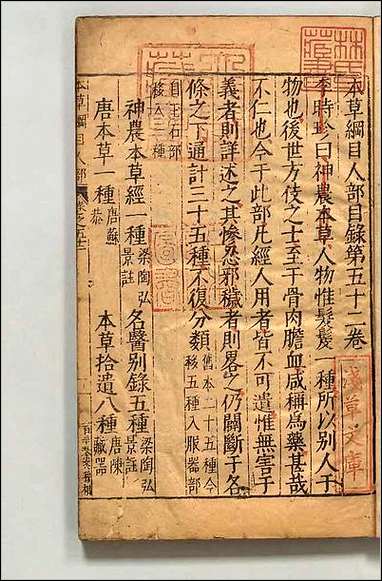 本草綱目人部目錄第五十二卷
李時珍曰神農本草人物惟髮髲一種所以別人于
物也後世方伎之士至于骨肉膽血咸稱爲藥甚哉
不仁也今于此部凡經人用者皆不可遺惟無害于
義者則詳述之其慘忍邪穢者則畧之仍闢斷于各
條之下通計三十五種不復分類舊本二十五種今移五種入服器部
自玉石部移入三種
神農本草經一種梁陶弘景註
名醫別錄五種梁陶弘景註
唐本草一種唐蘇恭
本草拾遺八種唐陳藏器
本草綱目人部
淺草文庫